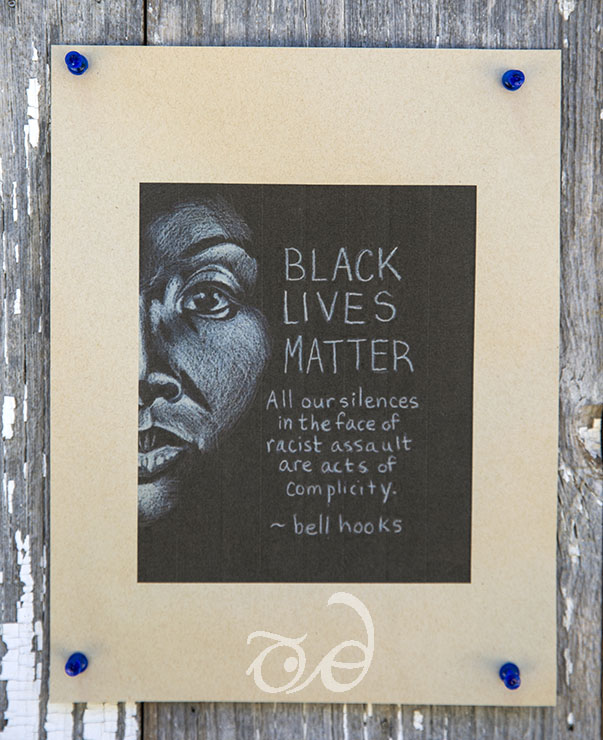 BLACK
LIVES
MATTER
All our silences
in the face of
racist assault
are acts of
complicity.
~ bell hooks